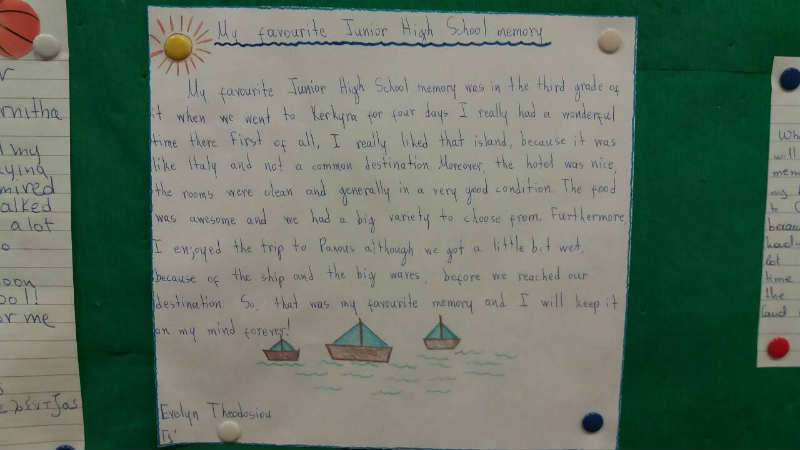 My favourite Junior High School memory
My favourite Junior High School memory was in the third grade of
it when we went to Kerkyra for four days I really had a wonderful
time there First of all, I really liked that island, because it was
like Italy and not a common destination. Moreover, the hotel was nice,
the rooms were clean and generally in a very good condition. The food
was awesome and we had a big variety to choose from. Furthermore
I enjoyed the trip to Paxous although we got a little bit wet,
because of the ship and the big waves, before we reached our
destination. So, that was my favourite memory and I will keep it
on my mind forever!
Evelyn Theodosiou
Γ3'
my
mired
alked
a lot
or me
Wh
will
mem
my
time
the